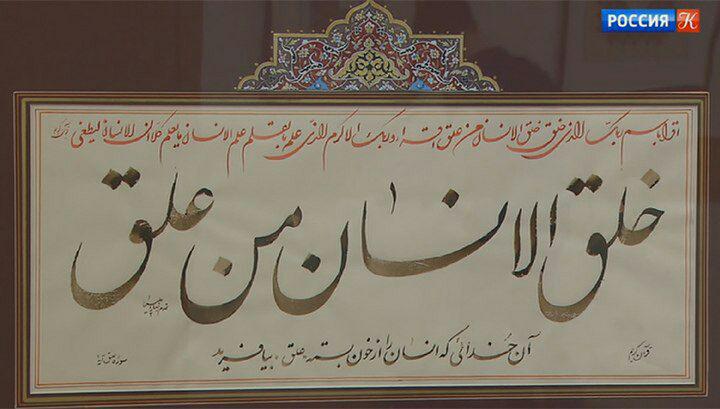 РОССИЯ К
اقرأ باسم ربك الذی خلق خلق الانسان من علق اقرا و ربک الاکرم الذی علم بالقلم علم الانسان ما لم یعلم کلا ان الانسان لیطغی
خلق الانسان من علق
آن خدائی که انسان را از خون بسته «علق» بیافرید
قرآن کریم
سوره علق آیه